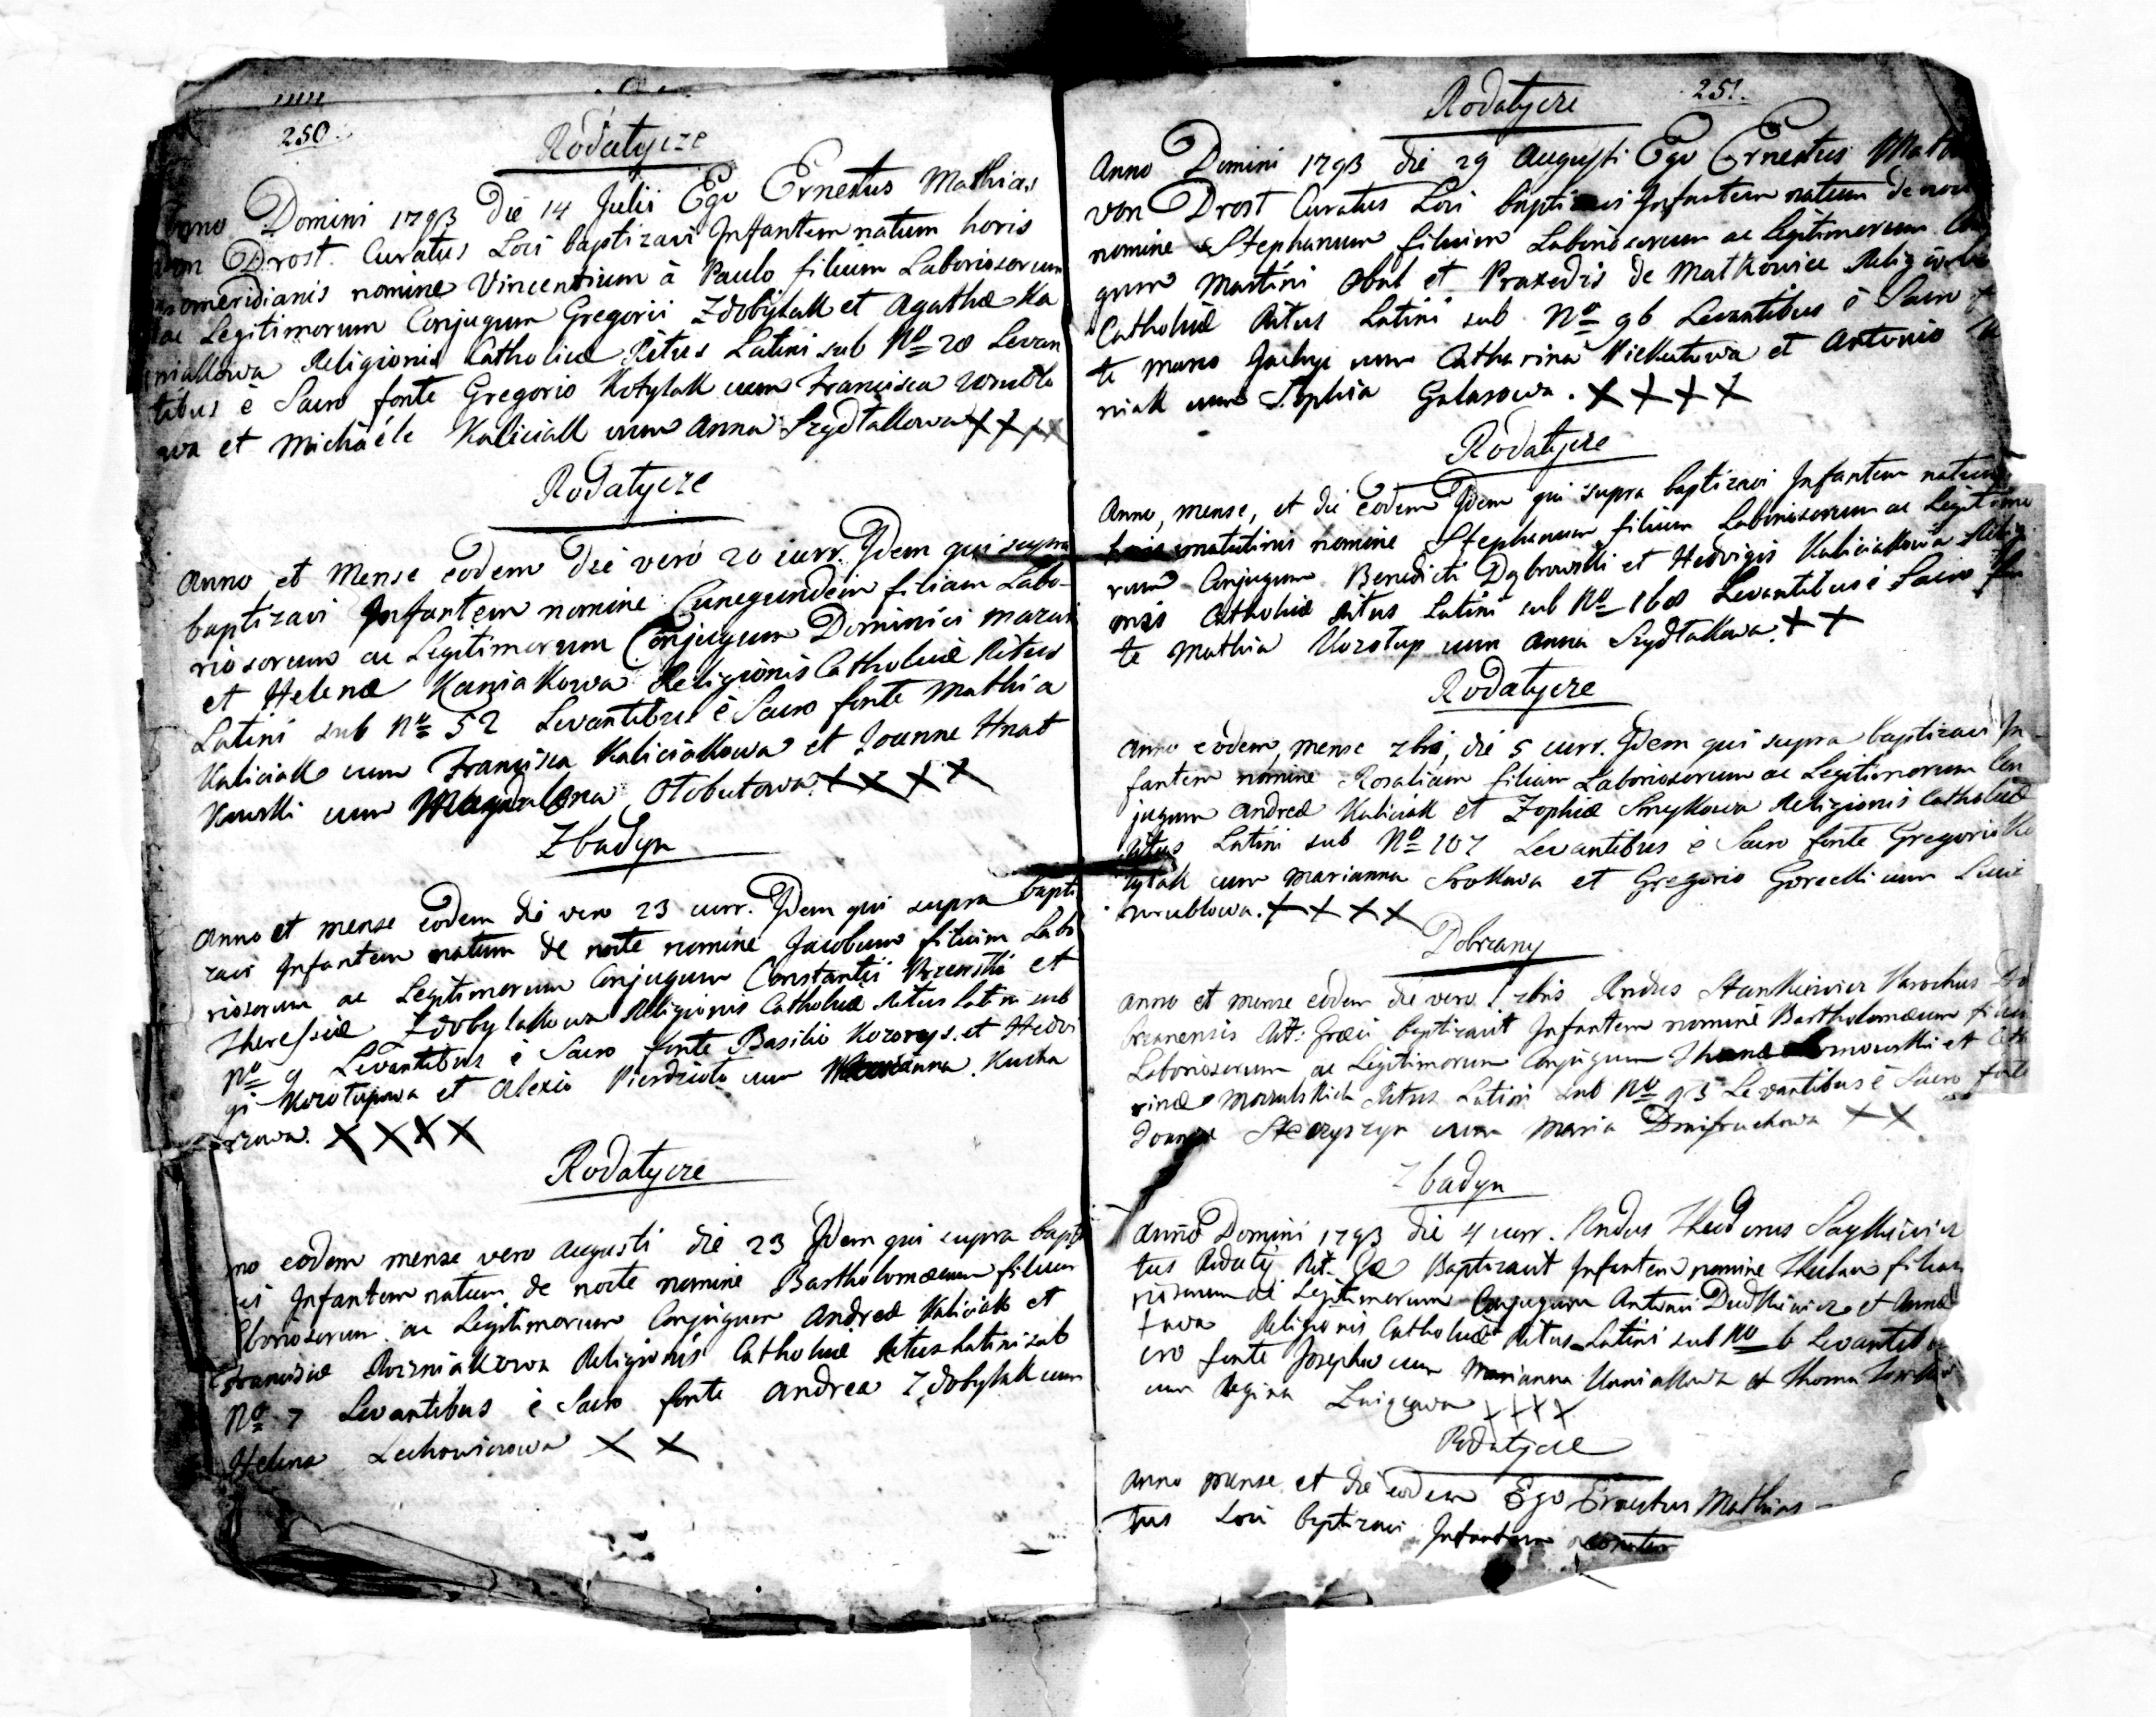 250.
Rodatycze
Anno Domini 1793 die 14 Julii Ego Ernestus Mathias
von Drost. Curatus Loci baptizavi Infantem natum horis
pomeridianis nomine Vincentium à Paulo filium Laboriosorum
ac Legitimorum Conjugum Gregorii Zdobylak et Agathæ Ka
niakowa Religionis Catholicæ Ritus Latini sub No 28 Levan
tibus è Sacro fonte Gregorio Kotylak cum Francisca
wa et Michaéle Kaliciak cum Anna Szydłakowa XXXX
Rodatycze
Anno et Mense eodem die verò 20 curr. Idem qui supra
baptizavi Infantem nomine Cunegundem filiam Labo-
riosorum ac Legitimorum Conjugum Dominici Mazur
et Helenæ Kaniakowa Religionis Catholicæ Ritus
Latini sub No 52 Levantibus è Sacro fonte Mathia
Kaliciak cum Francisca Kaliciakowa et Joanne Hnat
kowski cum Magdalena Otobutowa XXXX
Zbadyn
Anno et mense eodem die vero 23 curr. Idem qui supra bapti
zavi Infantem natum de nocte nomine Jacobum filium Labo
riosorum ac Legitimorum Conjugum Constantii et
Theressiæ Zdobylakowa Religionis Catholicæ Ritus Latini sub
No 9 Levantibus è Sacro fonte Basilio et Hedvi
gi Korotupowa et Alexio cum Marianna Kucha
rzowa. XXXX
Rodatycze
no eodem mense vero Augusti die 23 Idem qui supra bapti
vi Infantem natum de nocte nomine Bartholomæum filium
Laboriosorum ac Legitimorum Conjugum Andreæ Kaliciak et
Francisciæ Religionis Catholicæ Ritus Latini sub
No 7 Levantibus è Sacro fonte Andrea Zdobylak cum
Helena Lechowiczowa X X
251.
Rodatycze
Anno Domini 1793 die 29 Augusti Ego Ernestus Math
von Drost Curatus Loci baptizavi Infantem natum de noc
nomine Stephanum filium Laboriosorum ac Legitimorum Con
gum Martini et Praxedis de Matkowice Religionis
Catholicæ Ritus Latini sub No 96 Levantibus è Sacro
te Marco cum Catharina et Antonio
niak cum Sophia Galasowa. XXXX
Rodatycze
Anno, mense, et die eodem Idem qui supra baptizavi Infantem natum
horis matutinis nomine Stephanum filium Laboriosorum ac Legitimo
rum Conjugum Benedicti Dąbrowski et Hedvigis Kaliciakowa Relig
onis Catholicæ Ritus Latini sub No 168 Levantibus è Sacro fon
te Mathia Korotup cum Anna Szydłakowa. XX
Rodatycze
Anno eodem, mense 7bri, die 5 curr. Idem qui supra baptizavi In
fantem nomine Rosaliam filiam Laboriosorum ac Legitimorum Con
jugum Andreæ Kaliciak et Zophiæ Smykowa Religionis Catholicæ
Ritus Latini sub No 107 Levantibus è Sacro fonte Gregorio Ko
tylak cum Marianna Srokowa et Gregorio Gorecki cum Lucia
wrublowa. XXXX
Dobrzany
Anno et mense eodem die vero 7bris Rndus Stankiewicz Parochus Do
brzanensis Rit: Græci baptizavit Infantem nomine Bartholomæum filium
Laboriosorum ac Legitimorum Conjugum et Cath
rinæ Ritus Latini sub No 93 Levantibus è Sacro fonte
Joanne cum Maria XX
Zbadyn
Anno Domini 1793 die 4 curr. Rndus Theodorus
tus Rit. Baptizavit Infantem nomine Theclam filiam
riosorum ac Legitimorum Conjugum Antonii Dudkiewicz et Annæ
Religionis Catholicæ Ritus Latini sub No 6 Levantibus
cro fonte Josepho cum Marianna et Thoma
cum Regina XXXX
Rodatycze
Anno mense et die eodem Ego Ernestus Mathias
tus Loci baptizavi Infantem